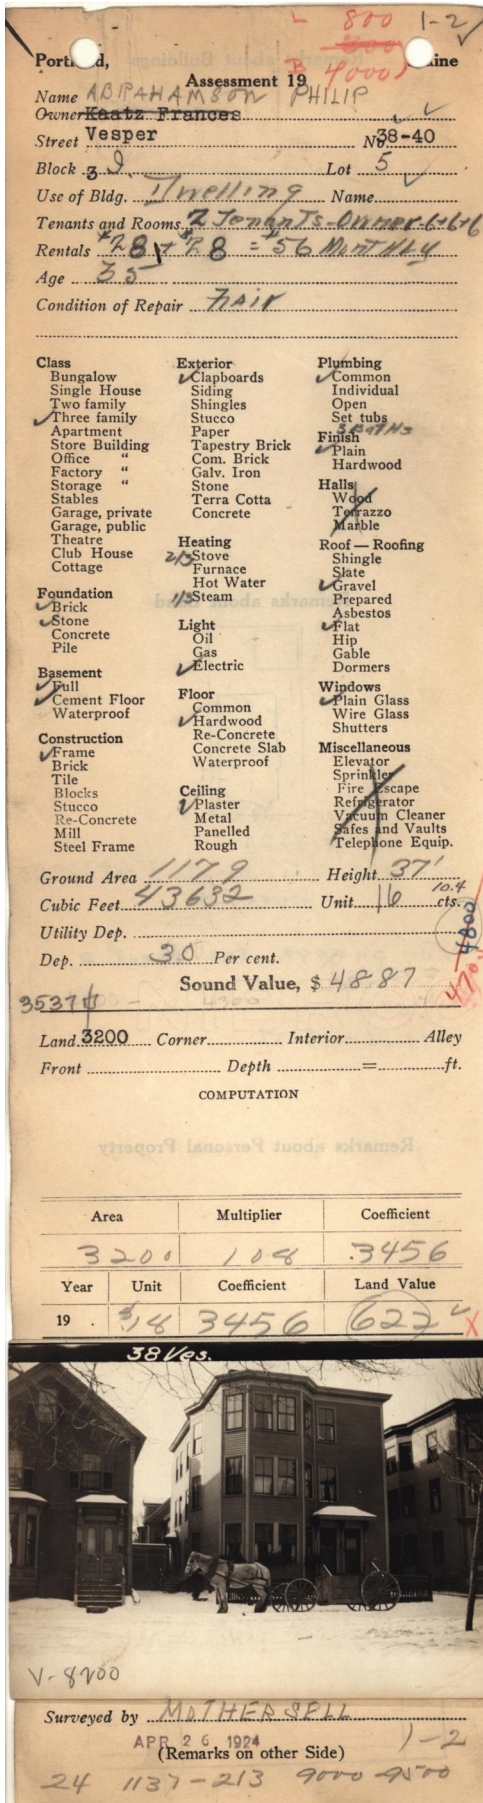 L 800 1-2
600
B 4000
Portland, Maine
Assessment 19
Name ABRAHAMSON PHILIP
Owner Kaatz Frances
Street Vesper No 38-40
Block 3 I Lot 5
Use of Bldg. Dwelling Name
Tenants and Rooms 2 Tenants-Owner 6+6+6
Rentals $28 + $28 = $56 Monthly
Age 35
Condition of Repair Fair
Class
Bungalow
Single House
Two family
Three family
Apartment
Store Building
Office "
Factory "
Storage "
Stables
Garage, private
Garage, public
Theatre
Club House
Cottage
Foundation
Brick
Stone
Concrete
Pile
Basement
Full
Cement Floor
Waterproof
Construction
Frame
Brick
Tile
Blocks
Stucco
Re-Concrete
Mill
Steel Frame
Exterior
Clapboards
Siding
Shingles
Stucco
Paper
Tapestry Brick
Com. Brick
Galv. Iron
Stone
Terra Cotta
Concrete
Heating
2/3 Stove
Furnace
Hot Water
1/3 Steam
Light
Oil
Gas
Electric
Floor
Common
Hardwood
Re-Concrete
Concrete Slab
Waterproof
Ceiling
Plaster
Metal
Panelled
Rough
Plumbing
Common
Individual
Open
Set tubs
3 Baths
Finish
Plain
Hardwood
Halls
Wood
Terrazzo
Marble
Roof — Roofing
Shingle
Slate
Gravel
Prepared
Asbestos
Flat
Hip
Gable
Dormers
Windows
Plain Glass
Wire Glass
Shutters
Miscellaneous
Elevator
Sprinkler
Fire Escape
Refrigerator
Vacuum Cleaner
Safes and Vaults
Telephone Equip.
Ground Area 1179 Height 37'
Cubic Feet 43632 Unit 16 10.4 cts.
Utility Dep.
4800
Dep. 30 Per cent.
Sound Value, $ 4887
3537
Land 3200 Corner Interior Alley
Front Depth = ft.
COMPUTATION
Area Multiplier Coefficient
3200 108 .3456
Year Unit Coefficient Land Value
19 . $18 3456 622 X
38 Ves.
V-8200
Surveyed by MOTHERSELL
APR 26 1924 1-2
(Remarks on other Side)
24 1137-213 9000 9500